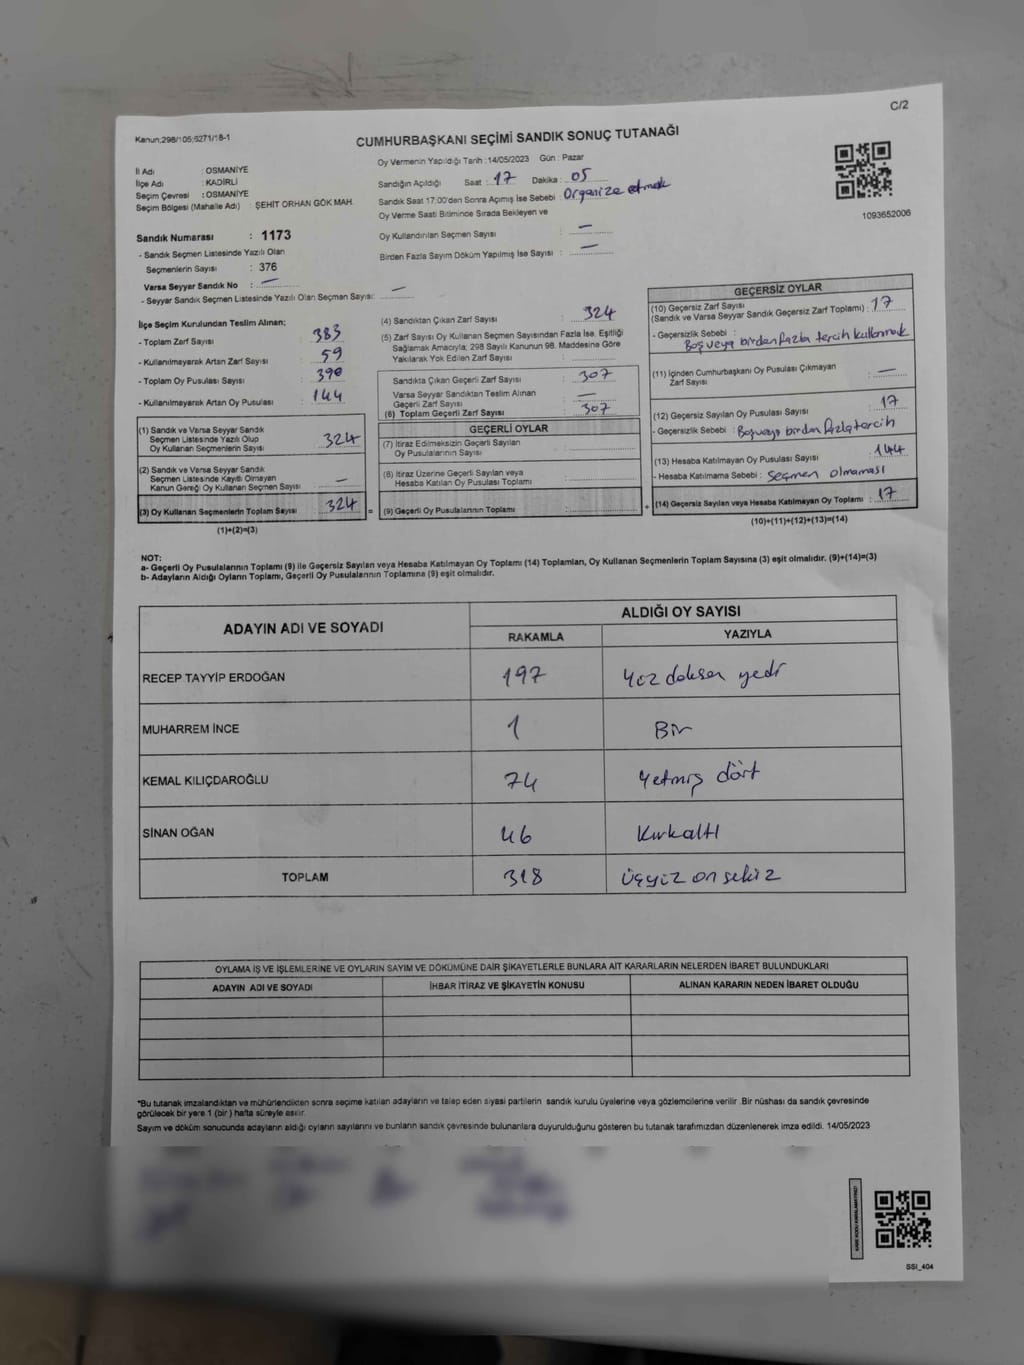 C/2
Kanun;298/105;6271/18-1
CUMHURBAŞKANI SEÇİMİ SANDIK SONUÇ TUTANAĞI
Oy Vermenin Yapıldığı Tarih :14/05/2023 Gün : Pazar
İl Adı : OSMANİYE
İlçe Adı : KADİRLİ
Seçim Çevresi : OSMANİYE
Seçim Bölgesi (Mahalle Adı) : ŞEHİT ORHAN GÖK MAH.
Sandığın Açıldığı Saat : 17 Dakika : 05
Sandık Saat 17:00'den Sonra Açımış İse Sebebi : Organize etmek
Oy Verme Saati Bitiminde Sırada Bekleyen ve
Oy Kullandırılan Seçmen Sayısı : —
Birden Fazla Sayım Döküm Yapılmış İse Sayısı : —
1093652006
Sandık Numarası : 1173
- Sandık Seçmen Listesinde Yazılı Olan
Seçmenlerin Sayısı : 376
Varsa Seyyar Sandık No : —
- Seyyar Sandık Seçmen Listesinde Yazılı Olan Seçmen Sayısı: —
İlçe Seçim Kurulundan Teslim Alınan;
- Toplam Zarf Sayısı : 383
- Kullanılmayarak Artan Zarf Sayısı : 59
- Toplam Oy Pusulası Sayısı : 390
- Kullanılmayarak Artan Oy Pusulası : 144
(1) Sandık ve Varsa Seyyar Sandık
Seçmen Listesinde Yazılı Olup
Oy Kullanan Seçmenlerin Sayısı : 324
(2) Sandık ve Varsa Seyyar Sandık
Seçmen Listesinde Kayıtlı Olmayan
Kanun Gereği Oy Kullanan Seçmen Sayısı : —
(3) Oy Kullanan Seçmenlerin Toplam Sayısı : 324
(1)+(2)=(3)
(4) Sandıktan Çıkan Zarf Sayısı : 324
(5) Zarf Sayısı Oy Kullanan Seçmen Sayısından Fazla İse, Eşitliği
Sağlamak Amacıyla, 298 Sayılı Kanunun 98. Maddesine Göre
Yakılarak Yok Edilen Zarf Sayısı :
Sandıkta Çıkan Geçerli Zarf Sayısı : 307
Varsa Seyyar Sandıktan Teslim Alınan
Geçerli Zarf Sayısı : —
(6) Toplam Geçerli Zarf Sayısı : 307
GEÇERLİ OYLAR
(7) İtiraz Edilmeksizin Geçerli Sayılan
Oy Pusulalarının Sayısı :
(8) İtiraz Üzerine Geçerli Sayılan veya
Hesaba Katılan Oy Pusulası Toplamı :
= (9) Geçerli Oy Pusulalarının Toplamı :
GEÇERSİZ OYLAR
(10) Geçersiz Zarf Sayısı
(Sandık ve Varsa Seyyar Sandık Geçersiz Zarf Toplamı) : 17
- Geçersizlik Sebebi :
Boş veya birden fazla tercih kullanmak
(11) İçinden Cumhurbaşkanı Oy Pusulası Çıkmayan
Zarf Sayısı : —
(12) Geçersiz Sayılan Oy Pusulası Sayısı : 17
- Geçersizlik Sebebi : Boş veya birden fazla tercih
(13) Hesaba Katılmayan Oy Pusulası Sayısı : 144
- Hesaba Katılmama Sebebi : Seçmen olmaması
+ (14) Geçersiz Sayılan veya Hesaba Katılmayan Oy Toplamı : 17
(10)+(11)+(12)+(13)=(14)
NOT:
a- Geçerli Oy Pusulalarının Toplamı (9) ile Geçersiz Sayılan veya Hesaba Katılmayan Oy Toplamı (14) Toplamları, Oy Kullanan Seçmenlerin Toplam Sayısına (3) eşit olmalıdır. (9)+(14)=(3)
b- Adayların Aldığı Oyların Toplamı, Geçerli Oy Pusulalarının Toplamına (9) eşit olmalıdır.
ADAYIN ADI VE SOYADI ALDIĞI OY SAYISI
RAKAMLA YAZIYLA
RECEP TAYYİP ERDOĞAN 197 Yüz doksan yedi
MUHARREM İNCE 1 Bir
KEMAL KILIÇDAROĞLU 74 Yetmiş dört
SİNAN OĞAN 46 Kırkaltı
TOPLAM 318 Üçyüz on sekiz
OYLAMA İŞ VE İŞLEMLERİNE VE OYLARIN SAYIM VE DÖKÜMÜNE DAİR ŞİKAYETLERLE BUNLARA AİT KARARLARIN NELERDEN İBARET BULUNDUKLARI
ADAYIN ADI VE SOYADI İHBAR İTİRAZ VE ŞİKAYETİN KONUSU ALINAN KARARIN NEDEN İBARET OLDUĞU
*Bu tutanak imzalandıktan ve mühürlendikten sonra seçime katılan adayların ve talep eden siyasi partilerin sandık kurulu üyelerine veya gözlemcilerine verilir .Bir nüshası da sandık çevresinde
görülecek bir yere 1 (bir ) hafta süreyle asılır.
Sayım ve döküm sonucunda adayların aldığı oyların sayılarını ve bunların sandık çevresinde bulunanlara duyurulduğunu gösteren bu tutanak tarafımızdan düzenlenerek imza edildi. 14/05/2023
KARE KODU KARALAMAYINIZ!
SSI_404